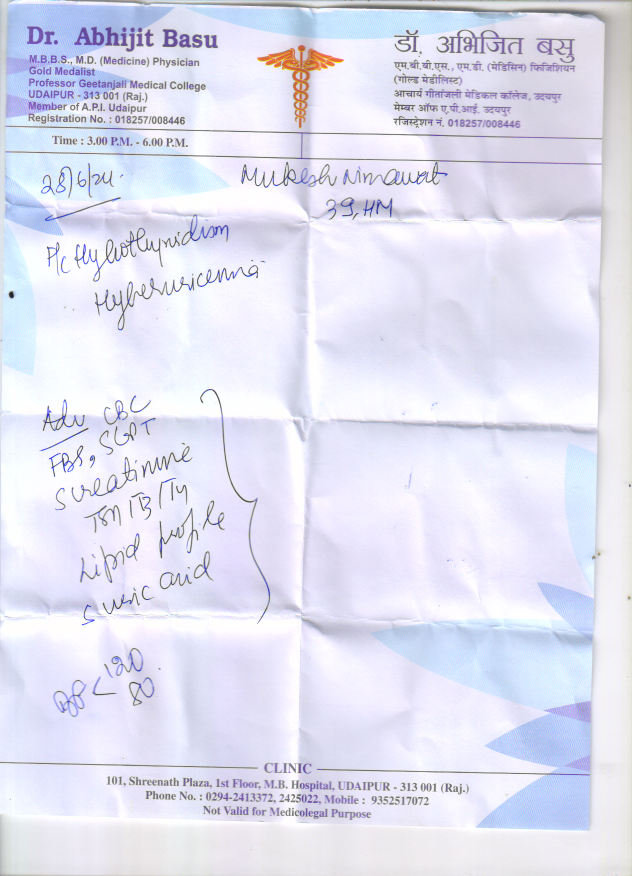 Dr. Abhijit Basu
M.B.B.S., M.D. (Medicine) Physician
Gold Medalist
Professor Geetanjali Medical College
UDAIPUR - 313 001 (Raj.)
Member of A.P.I. Udaipur
Registration No. : 018257/008446
Time : 3.00 P.M. - 6.00 P.M.
डॉ. अभिजित बसु
एम.बी.बी.एस., एम.डी. (मेडिसिन) फिजिशियन
(गोल्ड मेडीलिस्ट)
आचार्य गीतांजली मेडिकल कॉलेज, उदयपुर
मेम्बर ऑफ ए.पी.आई. उदयपुर
रजिस्ट्रेशन नं. 018257/008446
28/6/24.
Mukesh Nimawat
39, HM
Hypothyroidism
Hyperuricemia
Adv CBC
FBS, SGPT
S creatinine
TSH T3/T4
Lipid profile
S uric acid
BP < 120
80
CLINIC
101, Shreenath Plaza, 1st Floor, M.B. Hospital, UDAIPUR - 313 001 (Raj.)
Phone No. : 0294-2413372, 2425022, Mobile : 9352517072
Not Valid for Medicolegal Purpose